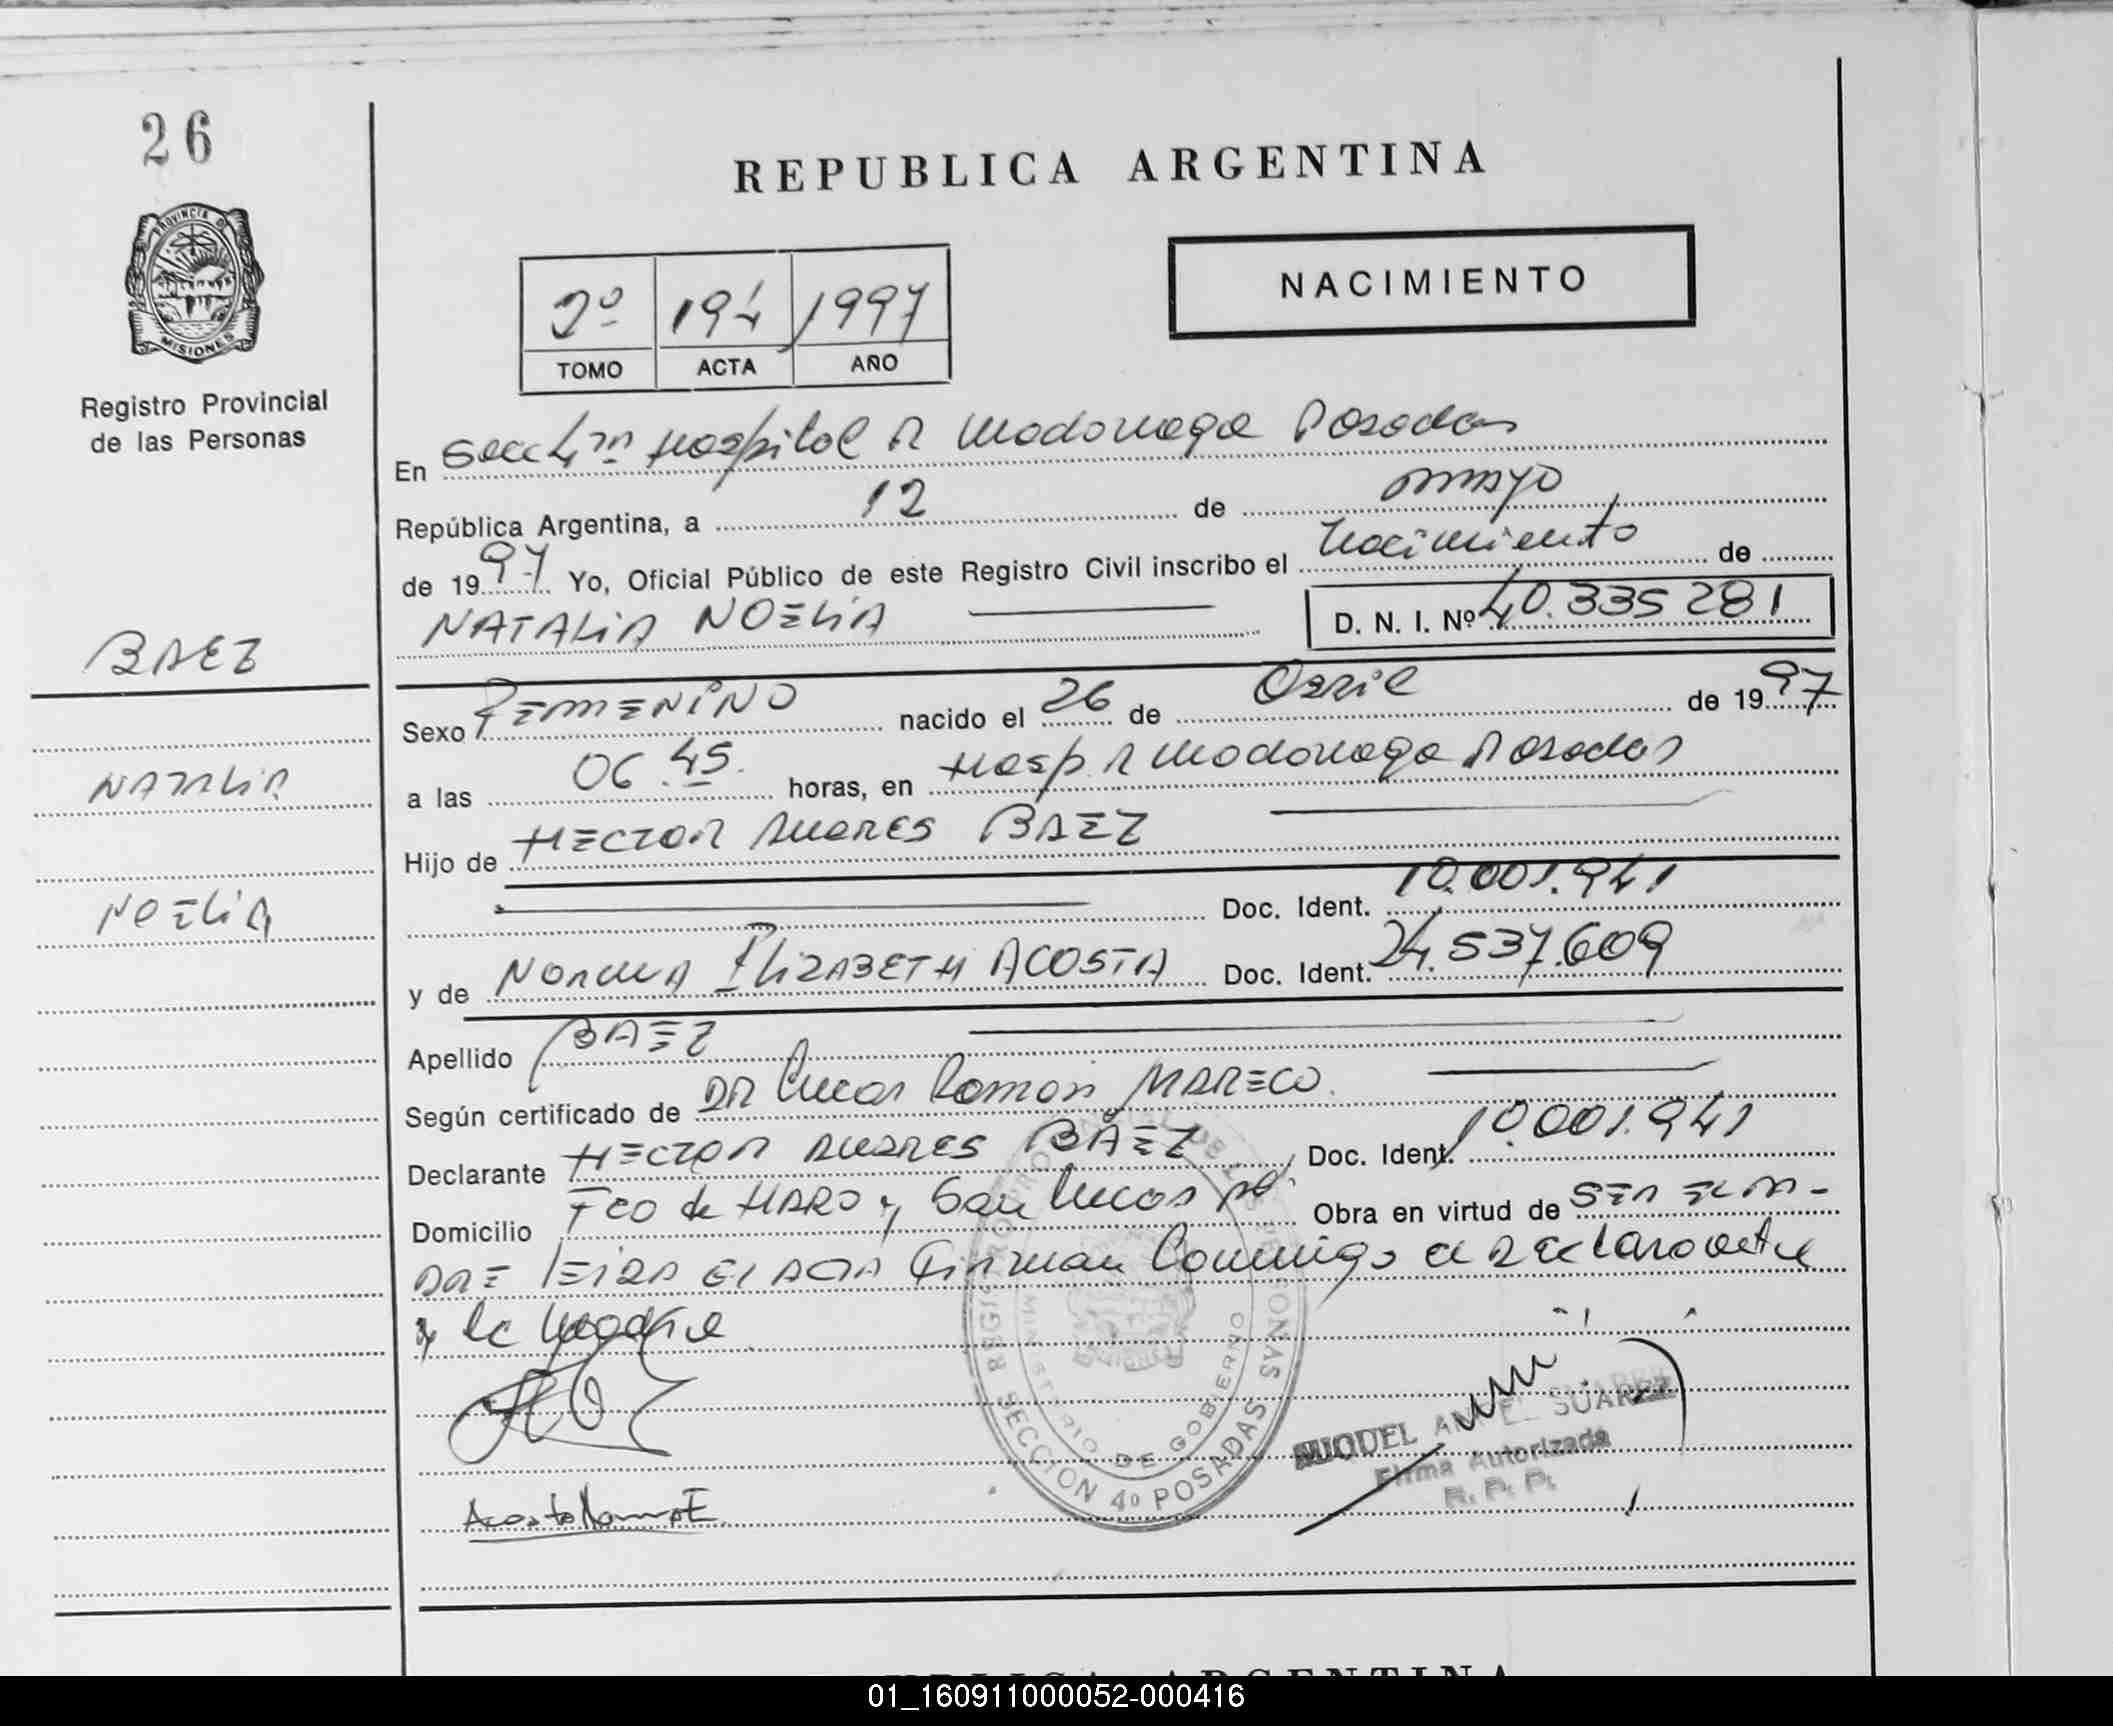 26
REPUBLICA ARGENTINA
PROVINCIA DE
MISIONES
Registro Provincial
de las Personas
NACIMIENTO
2º 194 1997
TOMO ACTA AÑO
En Secc 4ta Hospital R Madariaga Posadas
República Argentina, a 12 de mayo
de 1997 Yo, Oficial Público de este Registro Civil inscribo el nacimiento de
NATALIA NOELIA D. N. I. Nº 40.335 281
BAEZ
Sexo FEMENINO nacido el 26 de Abril de 1997
NATALIA
a las 06.45. horas, en Hosp R Madariaga Posadas
Hijo de HECTOR BAEZ
NOELIA
Doc. Ident. 10.001.941
y de NORMA ELIZABETH ACOSTA Doc. Ident. 24.537.609
Apellido BAEZ
Según certificado de DR Lucas Ramon MARECO.
Declarante HECTOR BAEZ Doc. Ident. 10.001.941
Domicilio Fco de HARO y San Lucas Obra en virtud de SER EL PA-
DRE Firman Conmigo el Declarante
y la Madre
REGISTRO PROVINCIAL DE LAS PERSONAS
MINISTERIO DE GOBIERNO
SECCION 4º POSADAS
MIGUEL ANGEL SUAREZ
Firma Autorizada
R. P. P.
Acosta Norma E
REPUBLICA ARGENTINA
01_160911000052-000416